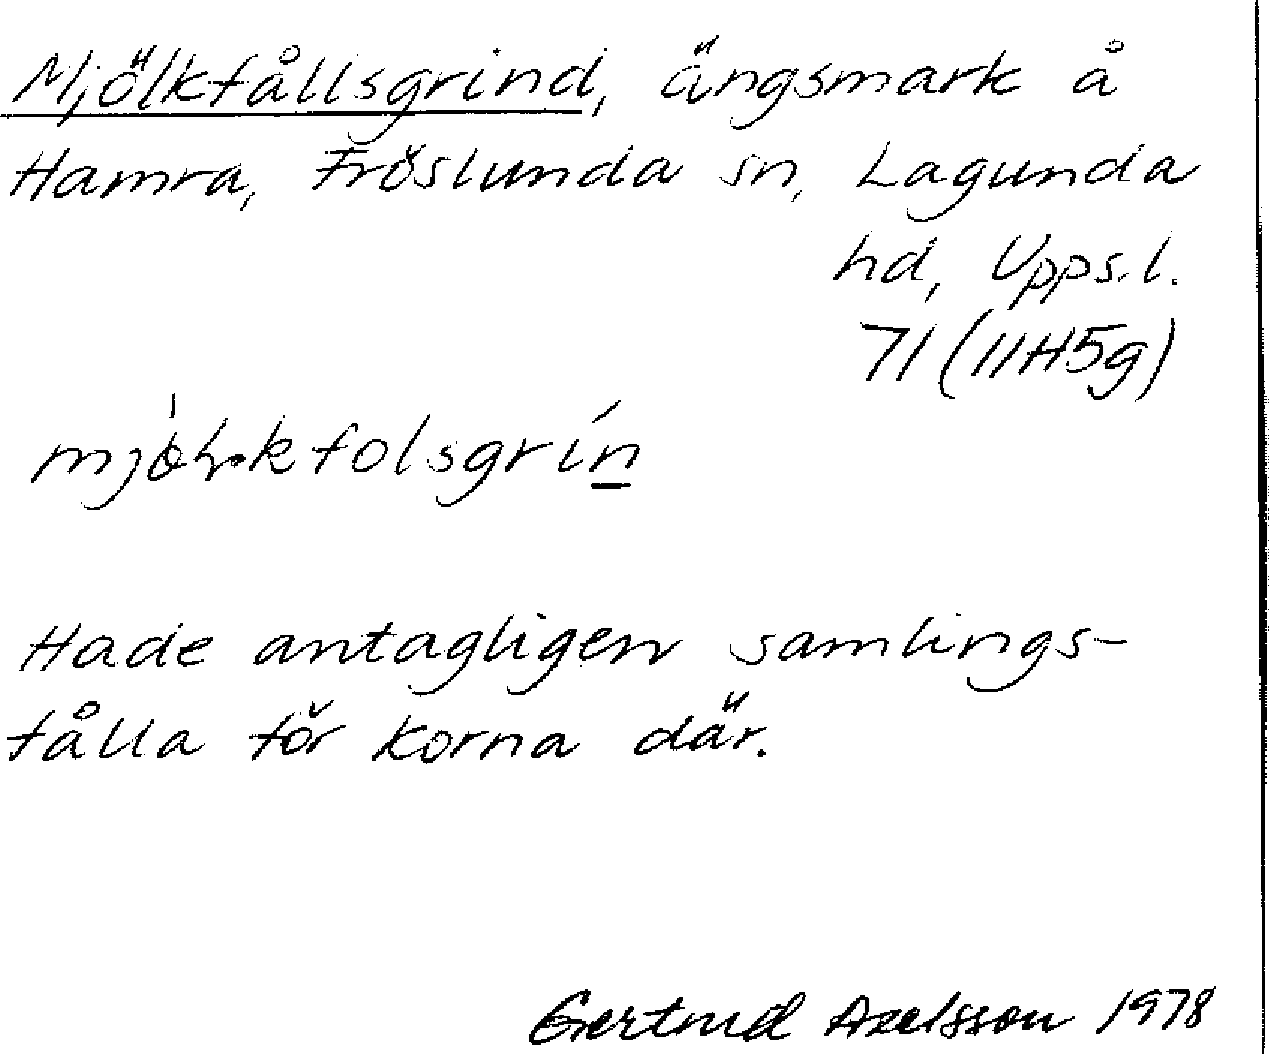 Mjölkfållsgrind, ängsmark å
Hamra, Fröslunda sn, Lagunda
hd, Upps.l.
71 (11H5g)
Hade antagligen samlings-
fålla för korna där.
Gertrud Axelsson 1978